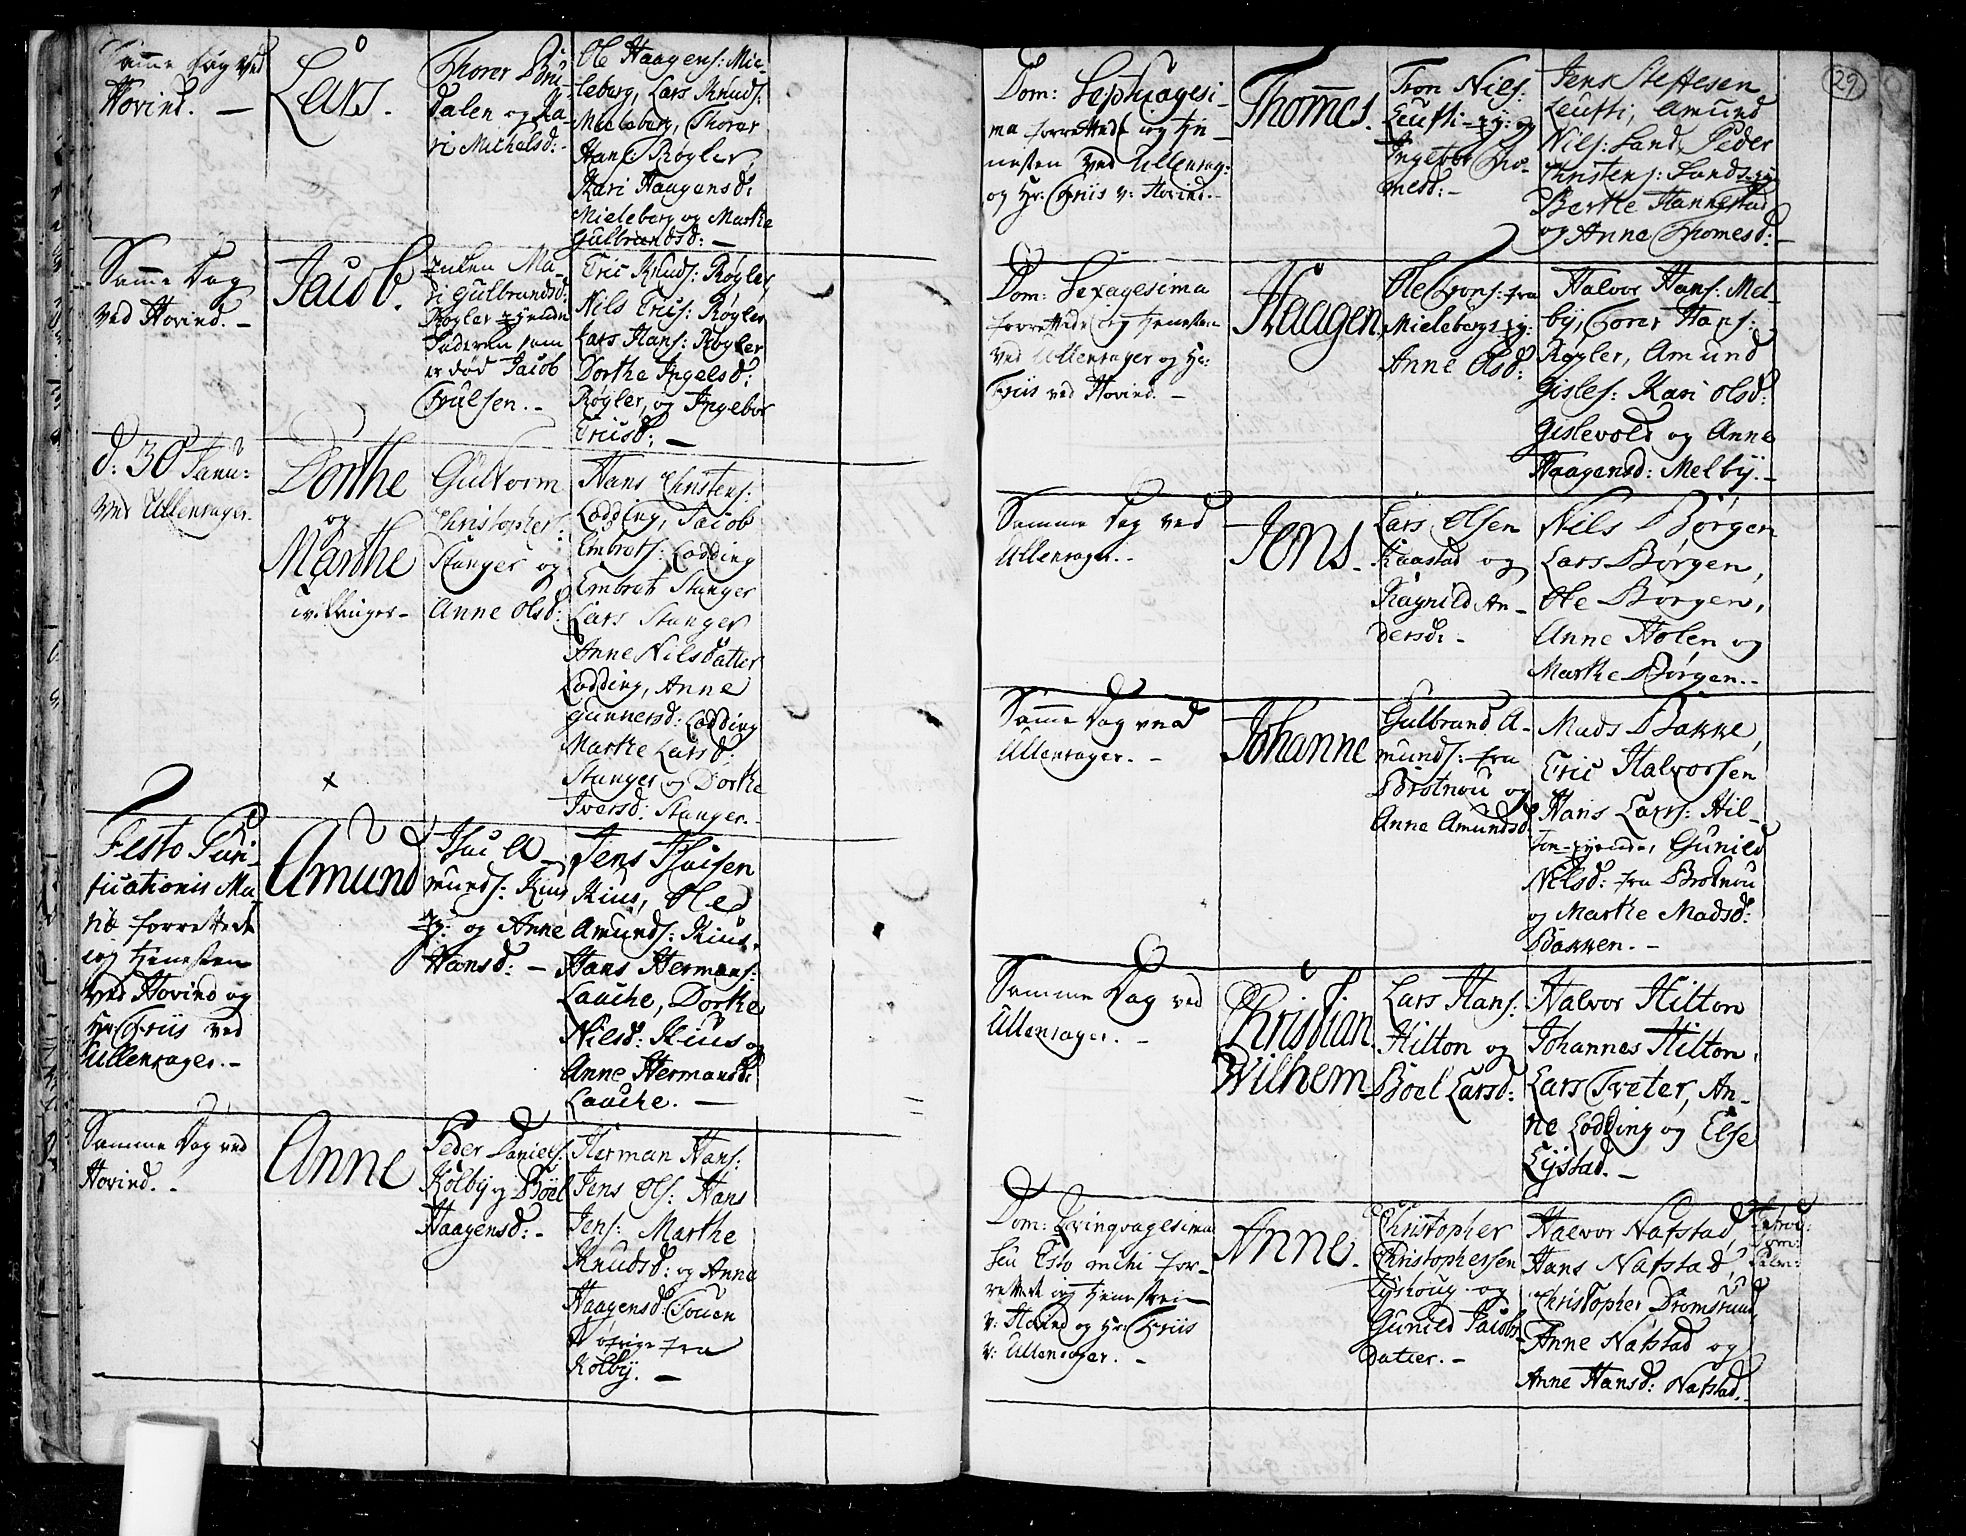 Samme Dag ved
Hovind. —
Lars.
Thorer Bru-
dalen og Ka-
ri Michelsd: -
Ole Haagens: Mie-
leberg, Lars Knuds:
Mieleberg, Thorer
Hans: Røgler,
Kari Haagensd:
Mieleberg og Marthe
Gulbrandsd: —
Samme Dag
ved Hovind. -
Jacob.
Enken Ma-
ri Gulbrandsd:
Røgler
Faderen som
er død Jacob
Truelsen. -
Eric Knuds: Røgler,
Nils Erics: Røgler
Lars Hans: Røgler
Dorthe Ingelsd:
Røgler, og Ingebor
Ericsd: —
d: 30 Janu:
ved Ullensager.
Dorthe
og
Marthe
tvillinger -
Guttorm
Christophers:
Stanger og
Anne Olsd:
Hans Christens:
Lodding, Jacob
Embrets: Lodding
Embret Stanger
Lars Stanger
Anne Nilsdatter
Lodding, Anne
Gunnersd: Lodding
Marthe Larsd:
Stanger og Dorthe
Iversd: Stanger. -
Festo Puri-
ficationis Ma-
riæ forrettede
ieg tienesten
ved Hovind og
Hr: Friis ved
Ullensager. -
Amund
Isac A-
munds: Kius
og Anne
Hansd: —
Jens Isacsen
Kius, Ole
Amunds: Kius,
Hans Hermans:
Lauche, Dorthe
Nilsd: Kius og
Anne Hermansd:
Lauche. —
Samme Dag ved
Hovind. -
Anne
Peder Daniels:
Kolby og Böel
Haagensd: -
Herman Hans:
Jens Ols: Hans
Jens: Marthe
Knudsd: og Anne
Haagensd:
fra
Kolby. —
29
Dom: Septuagesi-
ma forrettede ieg tie-
nesten ved Ullensag:
og Hr: Friis v: Hovind. -
Thomes.
Tron Nils:
og
Ingebor Tho-
mesd: -
Jens Steffesen
Amund
Nils: Sand, Peder
Christens: Sand
Berthe Hannestad
og Anne Thomesd: —
Dom: Sexagesima
forrettede ieg tienesten
ved Ullensager og Hr:
Friis ved Hovind. -
Haagen,
Ole Trons: fra
Mieleberg
Anne Olsd:
Halvor Hans: Mel-
by, Torer Hans:
Røgler, Amund
Gisles: Kari Olsd:
Gislevold og Anne
Haagensd: Melby. -
Samme Dag ved
Ullensager. -
Jens.
Lars Olsen
Kaastad og
Ragnild An-
dersd: -
Nils Børgen
Lars Børgen,
Ole Børgen,
Anne Holen og
Marthe Børgen. -
Samme Dag ved
Ullensager. -
Johanne
Gulbrand A-
munds: fra
Brotnou og
Anne Amundsd:
Mads Bakke,
Eric Halvorsen
Hans Lars: Hil-
ton Gunild
Nilsd: fra Brotnou
og Marthe Madsd:
Bakken. -
Samme Dag ved
Ullensager. -
Christian
Wilhem
Lars Hans:
Hilton og
Böel Larsd:
Halvor Hilton
Johannes Hilton,
Lars Tveter, An-
ne Lodding og Else
Lystad. -
Dom: Qvinqvagesima
seu Esto mihi for-
rettede ieg tienesten
v: Hovind og Hr: Friis
v: Ullensager. -
Anne.
Christopher
Christophersen
Lyshoug og
Gunild Jacobs-
datter. -
Halvor Nafstad,
Hans Nafstad,
Christopher Dromsrud,
Anne Nafstad og
Anne Hansd: Nafstad.